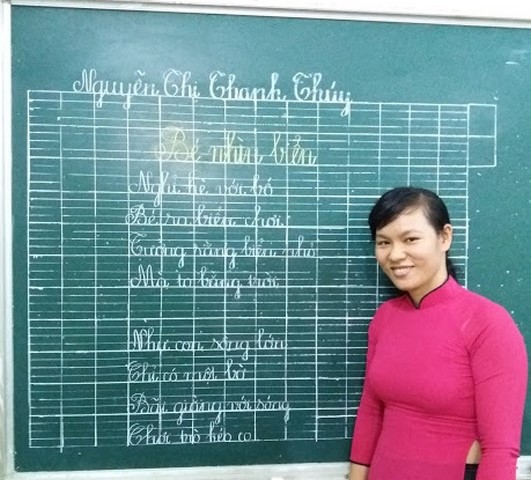 Nguyễn Thị Thanh Thúy
Bé nhìn biển
Nghỉ hè với bố
Bé ra biển chơi
Tưởng rằng biển nhỏ
Mà to bằng trời
Như con sông lớn
Chỉ có một bờ
Bãi giằng với sóng
Chơi trò kéo co